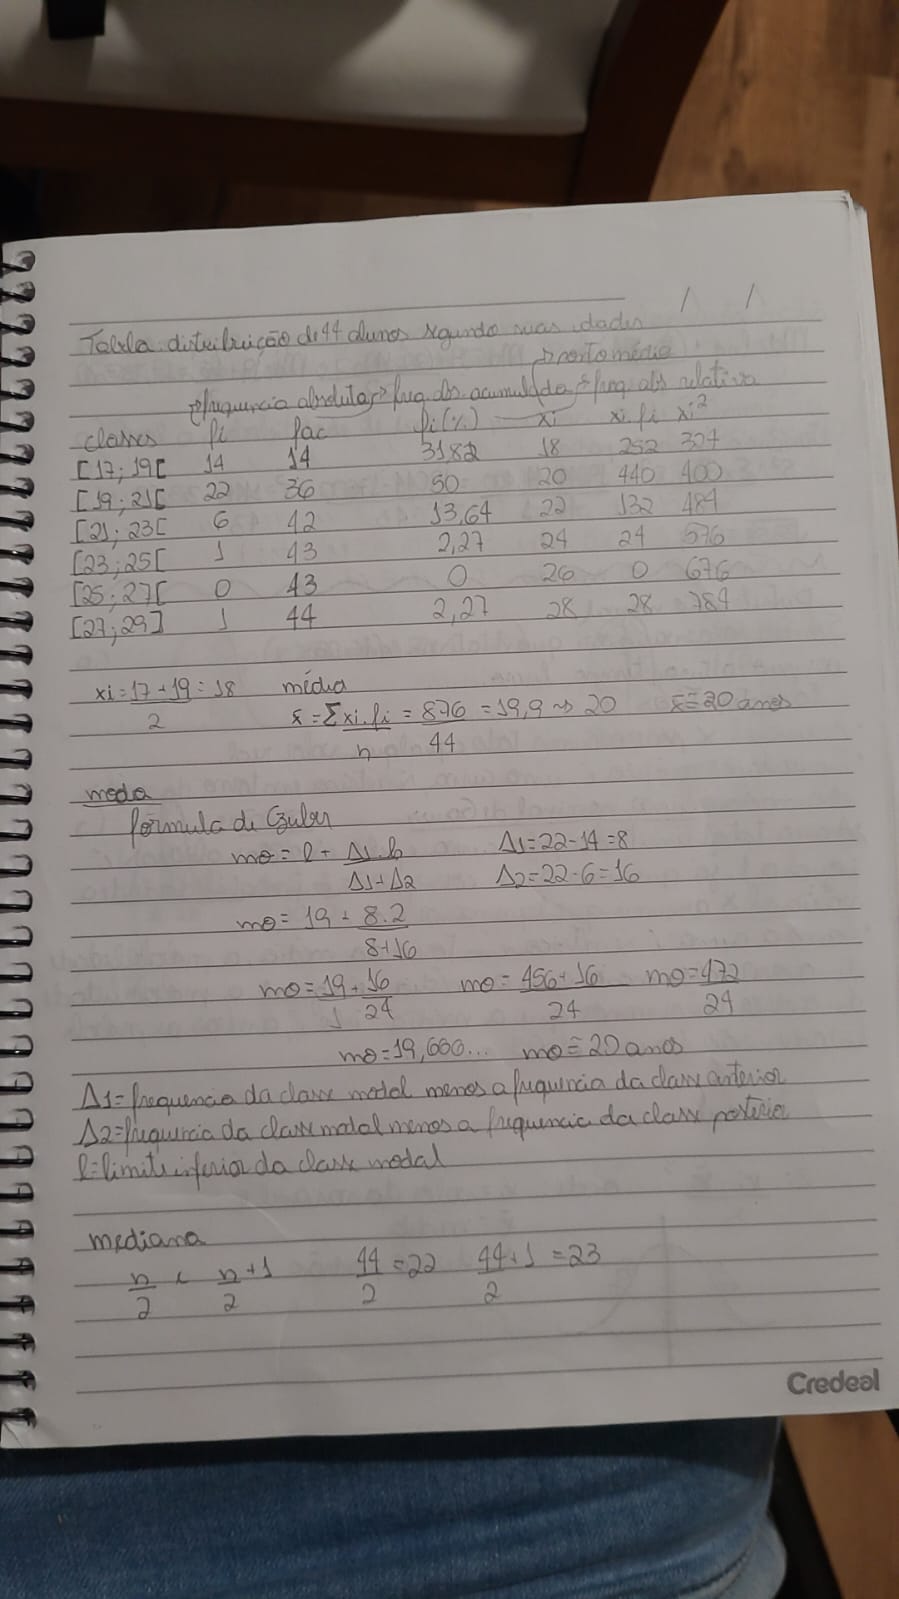 / /
Tabela: distribuição de 44 alunos segundo suas idades
→ponto médio
→frequencia absoluta →freq. abs acumulada →freq abs relativa
classes fi fac fi(%) xi xi.fi xi²
[17; 19[ 14 14 31,82 18 252 324
[19; 21[ 22 36 50 20 440 400
[21; 23[ 6 42 13,64 22 132 484
[23; 25[ 1 43 2,27 24 24 576
[25; 27[ 0 43 0 26 0 676
[27; 29] 1 44 2,27 28 28 784
xi = 17 + 19 / 2 = 18 média x̄ = Σ xi.fi / n = 876 / 44 = 19,9 → 20 x̄ = 20 anos
moda
fórmula de Czuber
mo = l + Δ1.h / Δ1+Δ2 Δ1=22-14=8
Δ2=22-6=16
mo = 19 + 8.2 / 8+16
mo = 19 / 1 + 16 / 24 mo = 456+16 / 24 mo = 472 / 24
mo = 19,666... mo = 20 anos
Δ1=frequencia da classe modal menos a frequencia da classe anterior
Δ2=frequencia da classe modal menos a frequencia da classe posterior
l=limite inferior da classe modal
mediana
n/2 e n/2 + 1 44/2 = 22 44/2 + 1 = 23
Credeal